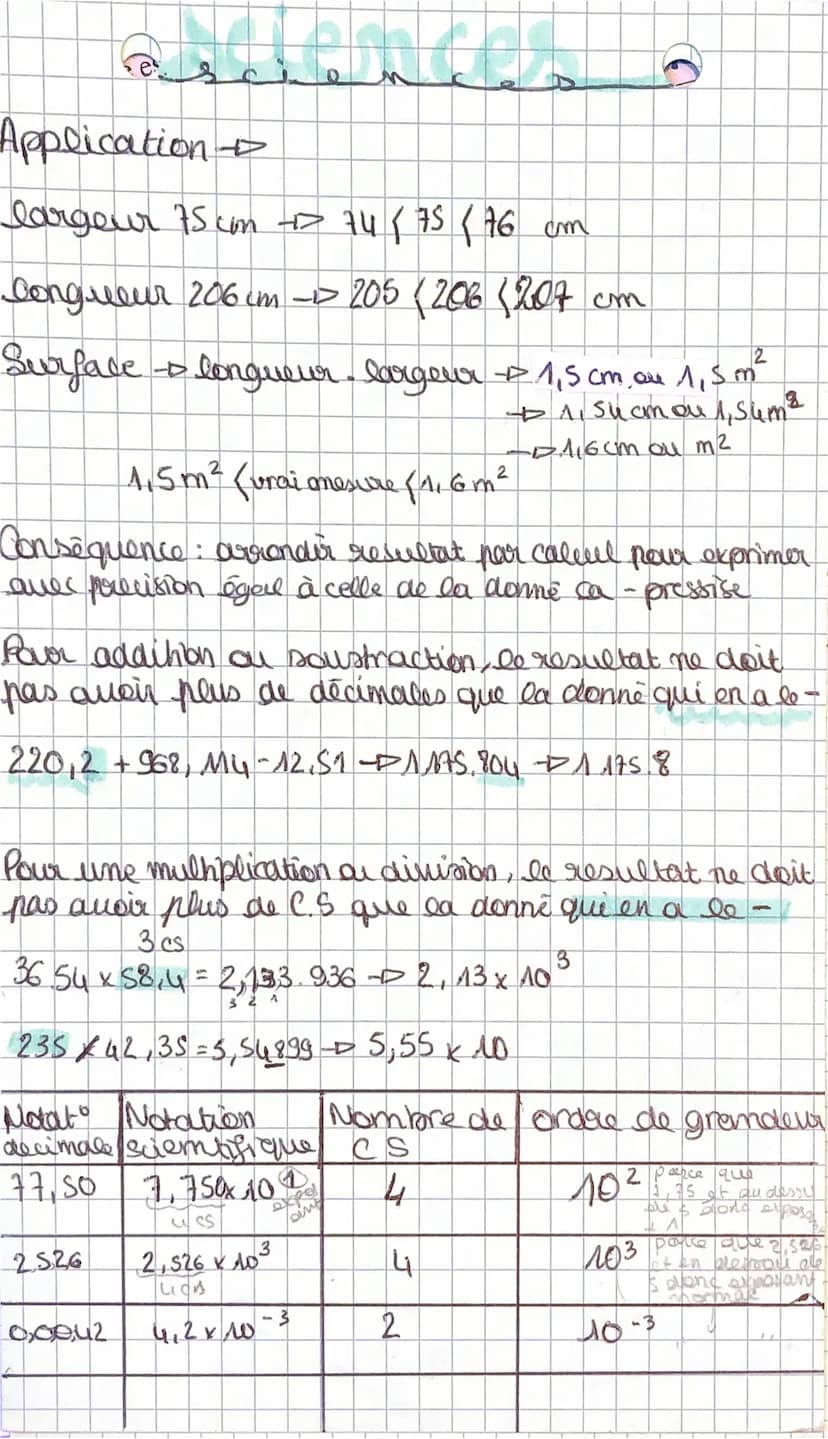 sciences
e. sciences
Application →
largeur 75 cm → 74 < 75 < 76 cm
longueur 206 cm → 205 < 206 < 207 cm
Surface → longueur . largeur → 1,5 cm ou 1,5 m²
→ 1,54 cm ou 1,54 m²
→ 1,6 cm ou m²
1,5 m² < vrai mesure < 1,6 m²
Conséquence : arrondir resultat par calcul pour exprimer
avec precision égal à celle de la donné la - pressise
Pour addition ou soustraction, le resultat ne doit
pas avoir plus de décimales que la donné qui en a le -
220,2 + 968,114 - 12,51 → 1 175,804 → 1 175.8
Pour une multiplication ou division, le resultat ne doit
pas avoir plus de C.S que la donné qui en a le -
3 cs
36.54 x 58,4 = 2,133.936 → 2,13 x 10³
3 2 1
235 x 42,35 = 5,54899 → 5,55 x 10
Notat° décimale | Notation scientifique | Nombre de CS | ordre de grandeur
77,50 | 7,750 x 10¹ exposant 4 CS | 4 | 10² parce que 7,75 et au dessu de 5 donc expos + 1
2526 | 2,526 x 10³ 4 CS | 4 | 10³ parce que 2,526 et en dessou de 5 donc exposant normal
0,0042 | 4,2 x 10⁻³ | 2 | 10⁻³ ''